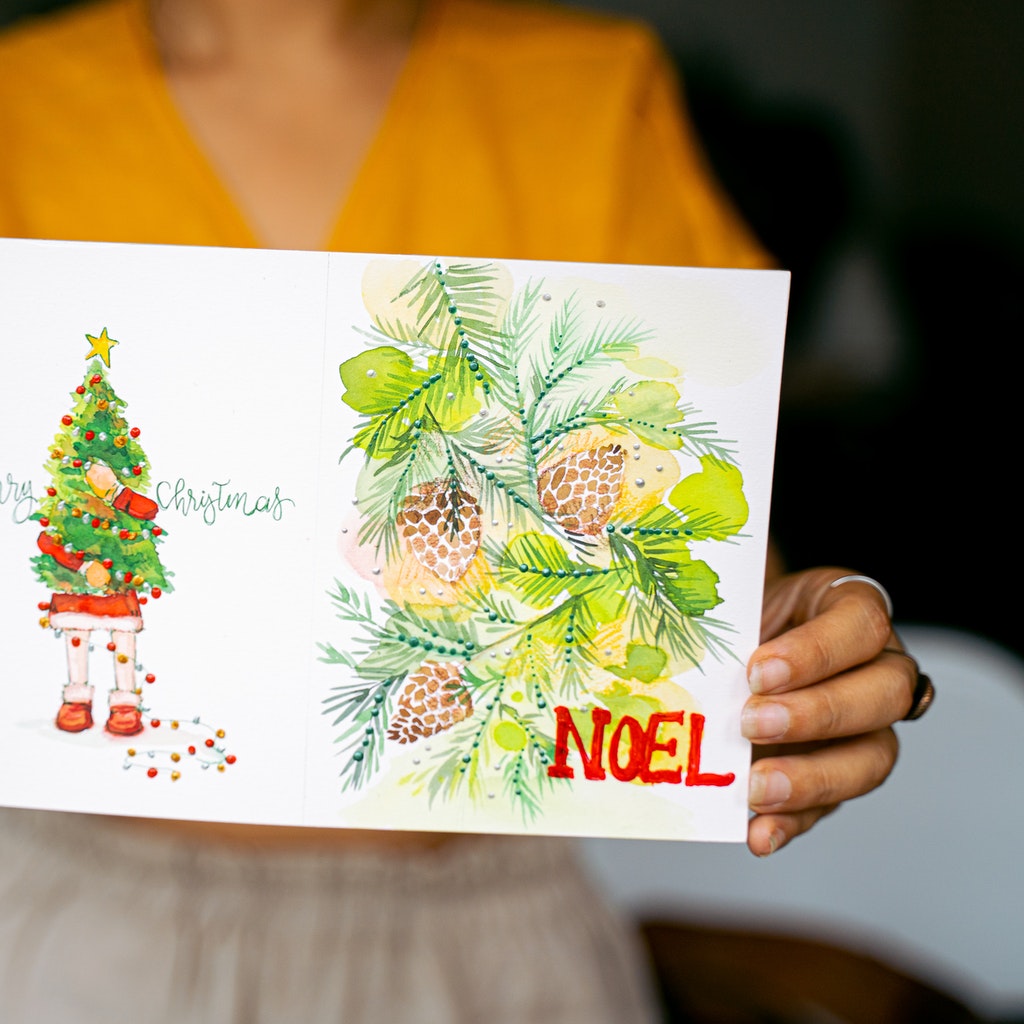 Christmas
NOEL